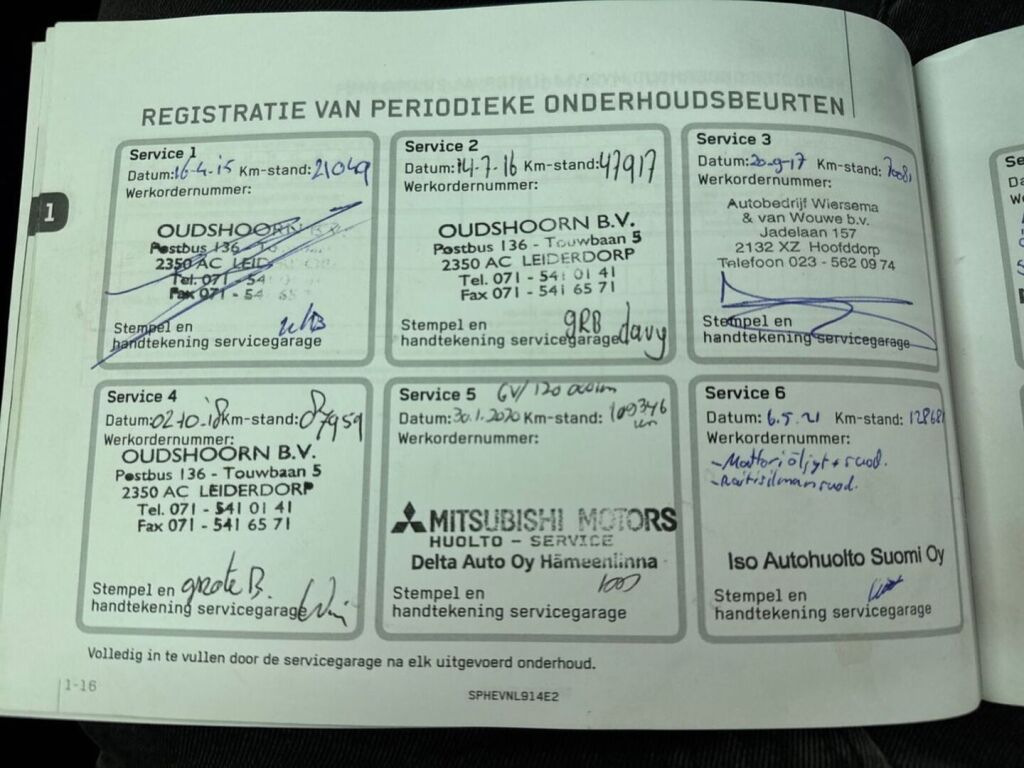 REGISTRATIE VAN PERIODIEKE ONDERHOUDSBEURTEN
1
Service 1
Datum: 16-4-15 Km-stand: 21049
Werkordernummer:
OUDSHOORN B.V.
Postbus 136 - To
2350 AC LEIDERDORP
Tel. 071 - 54
Fax 071 - 54 65 7
Stempel en
handtekening servicegarage
Service 2
Datum: 14-7-16 Km-stand: 47917
Werkordernummer:
OUDSHOORN B.V.
Postbus 136 - Touwbaan 5
2350 AC LEIDERDORP
Tel. 071 - 541 01 41
Fax 071 - 541 65 71
Stempel en grB
handtekening servicegarage davy
Service 3
Datum: 20-9-17 Km-stand: 70081
Werkordernummer:
Autobedrijf Wiersema
& van Wouwe b.v.
Jadelaan 157
2132 XZ Hoofddorp
Telefoon 023 - 562 09 74
Stempel en
handtekening servicegarage
Service 4
Datum: 02-10-18 Km-stand: 87959
Werkordernummer:
OUDSHOORN B.V.
Postbus 136 - Touwbaan 5
2350 AC LEIDERDORP
Tel. 071 - 541 01 41
Fax 071 - 541 65 71
Stempel en grote B.
handtekening servicegarage
Service 5 GV/120
Datum: 30.1.2020 Km-stand: 109346
km
Werkordernummer:
MITSUBISHI MOTORS
HUOLTO - SERVICE
Delta Auto Oy Hämeenlinna
Stempel en
handtekening servicegarage
Service 6
Datum: 6.5.21 Km-stand: 128681
Werkordernummer:
- Moottoriöljyt + suod.
- Raitisilmansuod.
Iso Autohuolto Suomi Oy
Stempel en
handtekening servicegarage
Volledig in te vullen door de servicegarage na elk uitgevoerd onderhoud.
1-16
SPHEVNL914E2